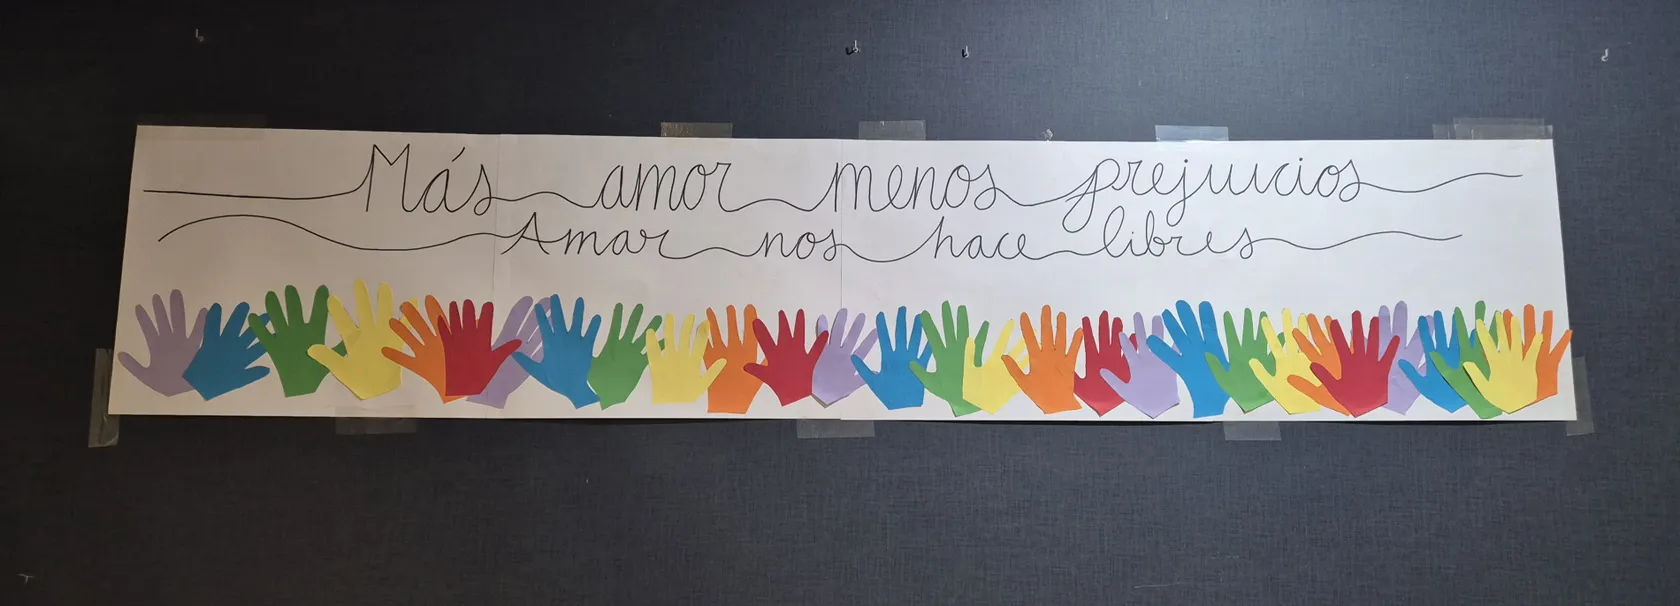 Más amor menos prejuicios
Amar nos hace libres